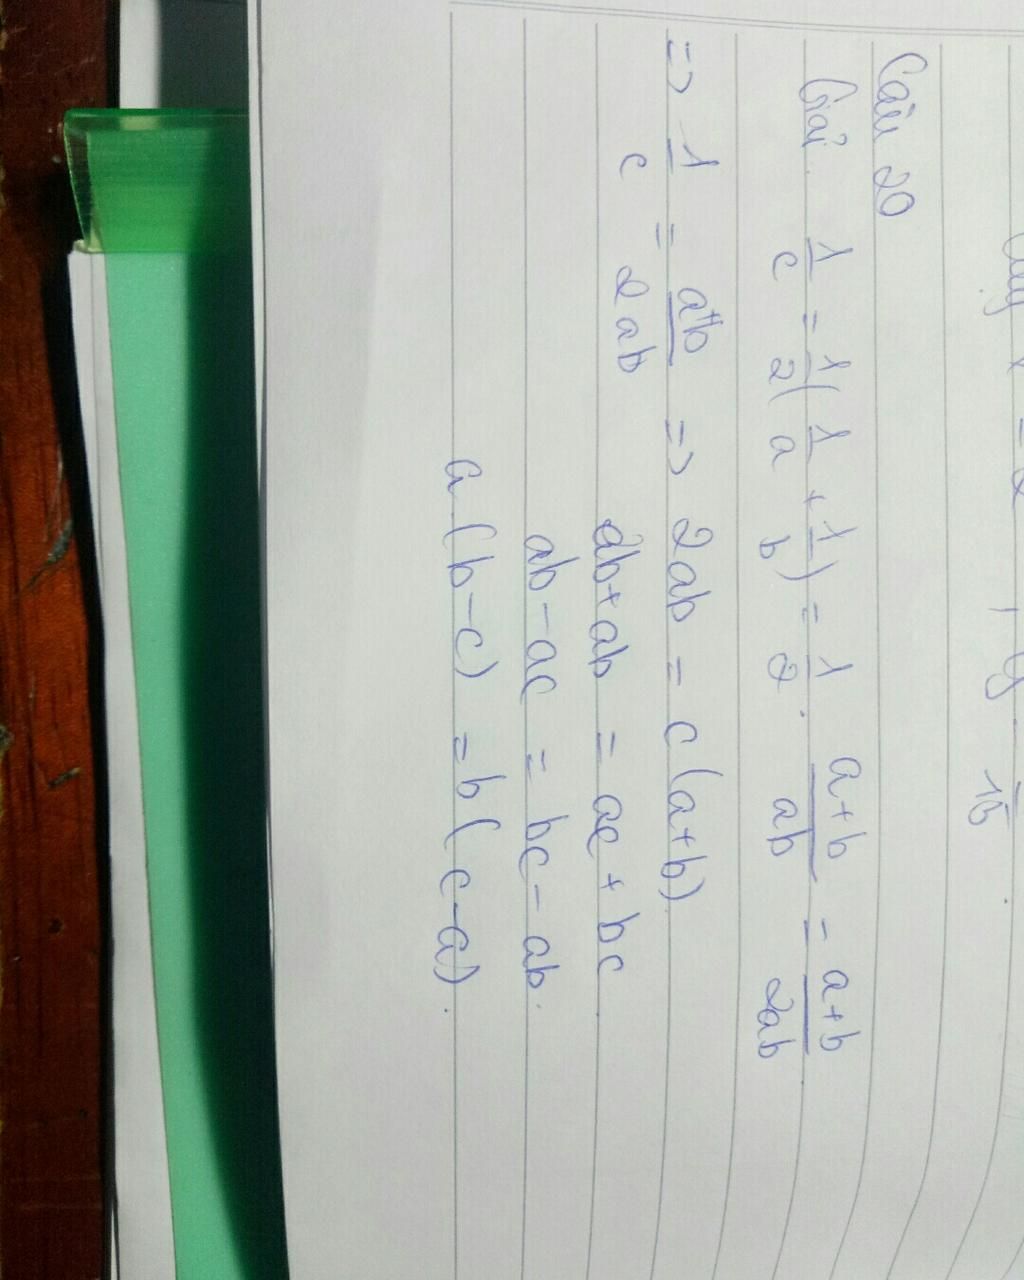 = 2 , y = 15
Câu 20
Giải 1/c = 1/2(1/a + 1/b) = 1/2 . a+b/ab = a+b/2ab
=> 1/c = a+b/2ab => 2ab = c(a+b)
ab+ab = ac + bc
ab-ac = bc - ab.
a(b-c) = b(c-a).